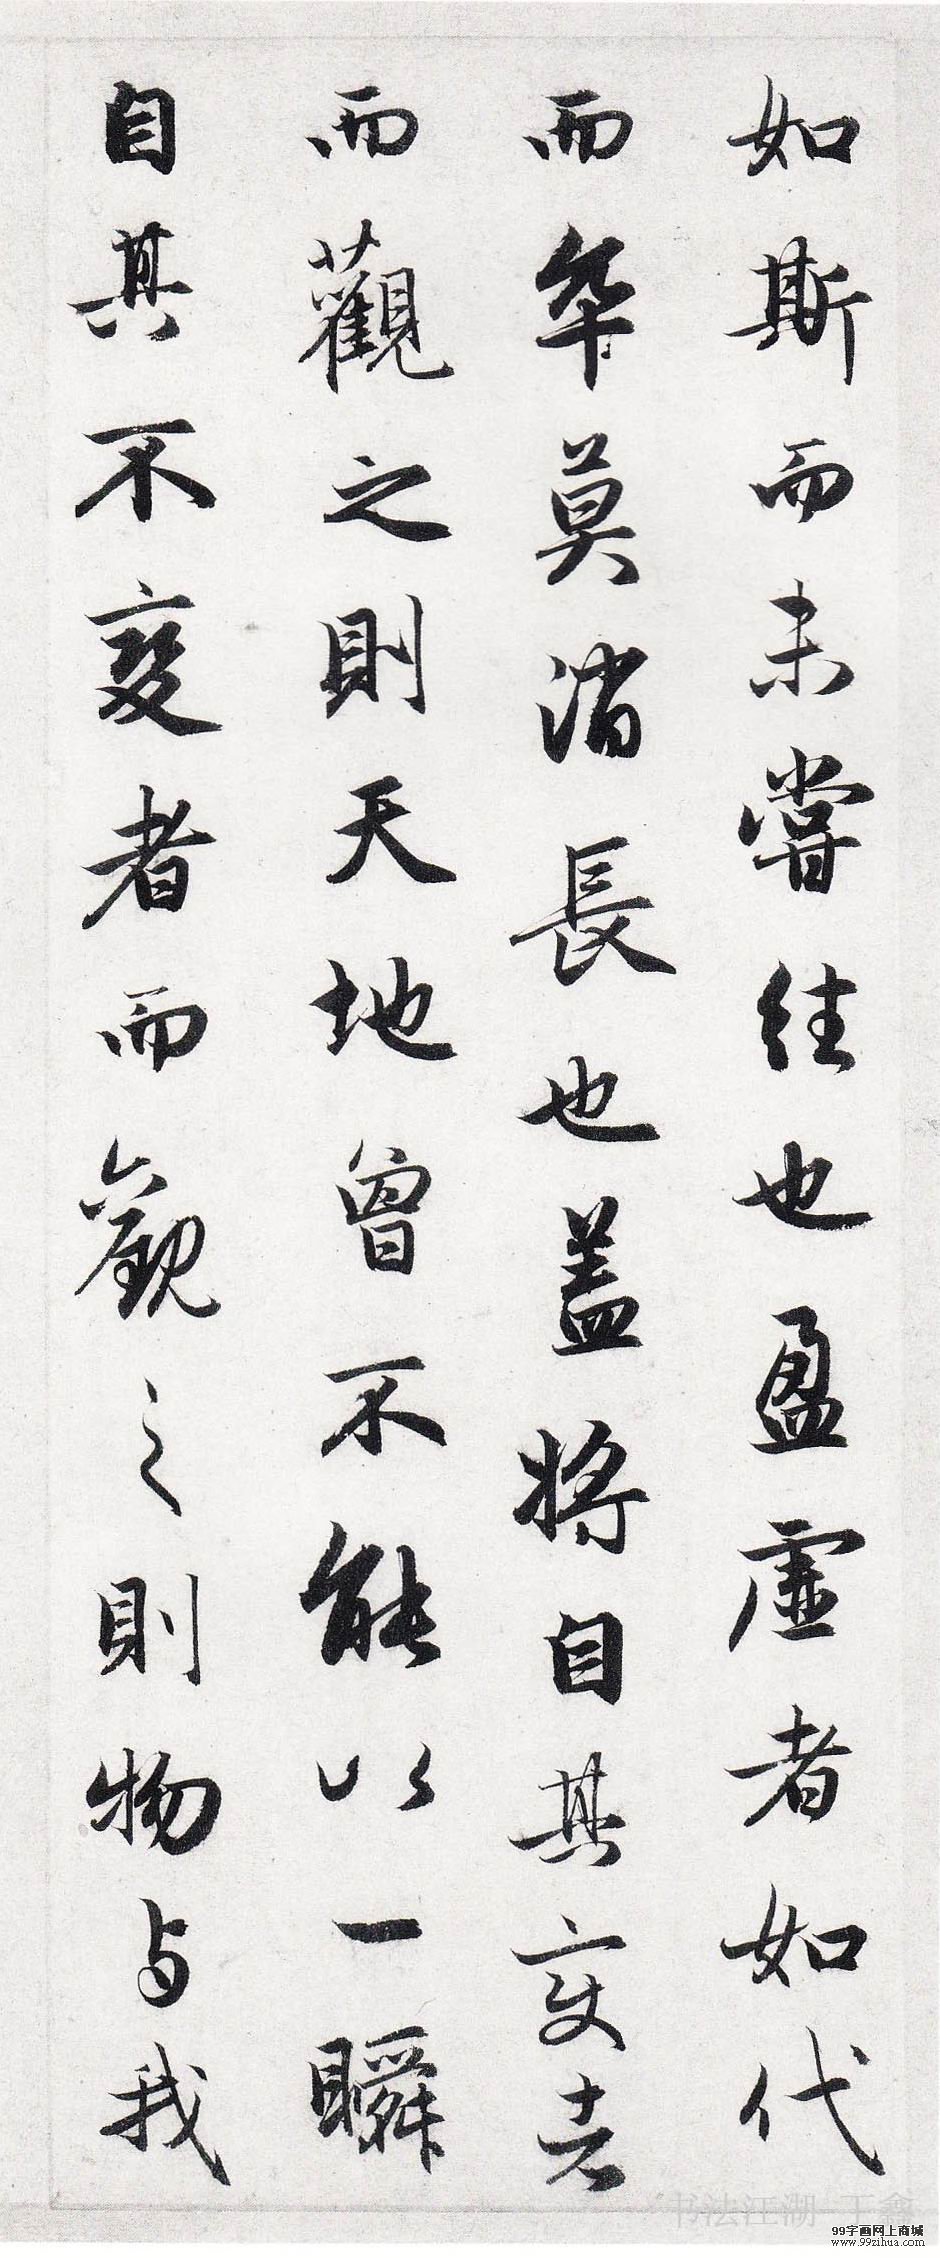 如斯而未嘗往也盈虚者如代
而卒莫消長也盖將自其变者
而觀之則天地曾不能以一瞬
自其不變者而觀之則物与我
书法江湖 王鑫
99字画网上商城
www.99zihua.com